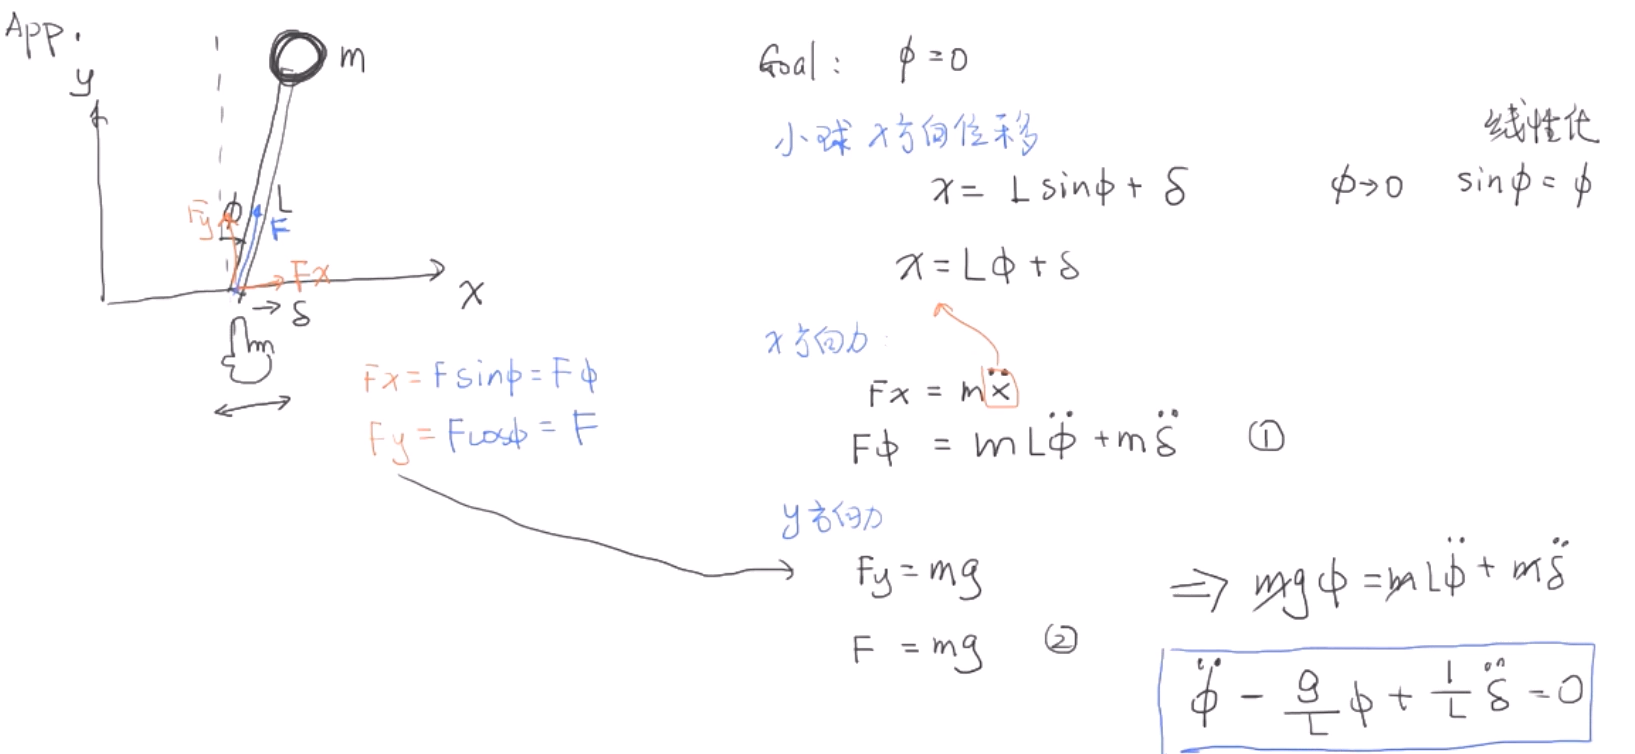 App.
y
m
φ
L
Fy
F
Fx
x
→ δ
Fx = F sinφ = Fφ
Fy = Fcosφ = F
Goal: φ = 0
小球 x方向位移
x = L sinφ + δ
线性化
φ→0 sinφ = φ
x = Lφ + δ
x方向力:
Fx = mẍ
Fφ = mLφ̈ + mδ̈ ①
y方向力
Fy = mg
F = mg ②
⇒ mgφ = mLφ̈ + mδ̈
φ̈ - g/L φ + 1/L δ̈ = 0